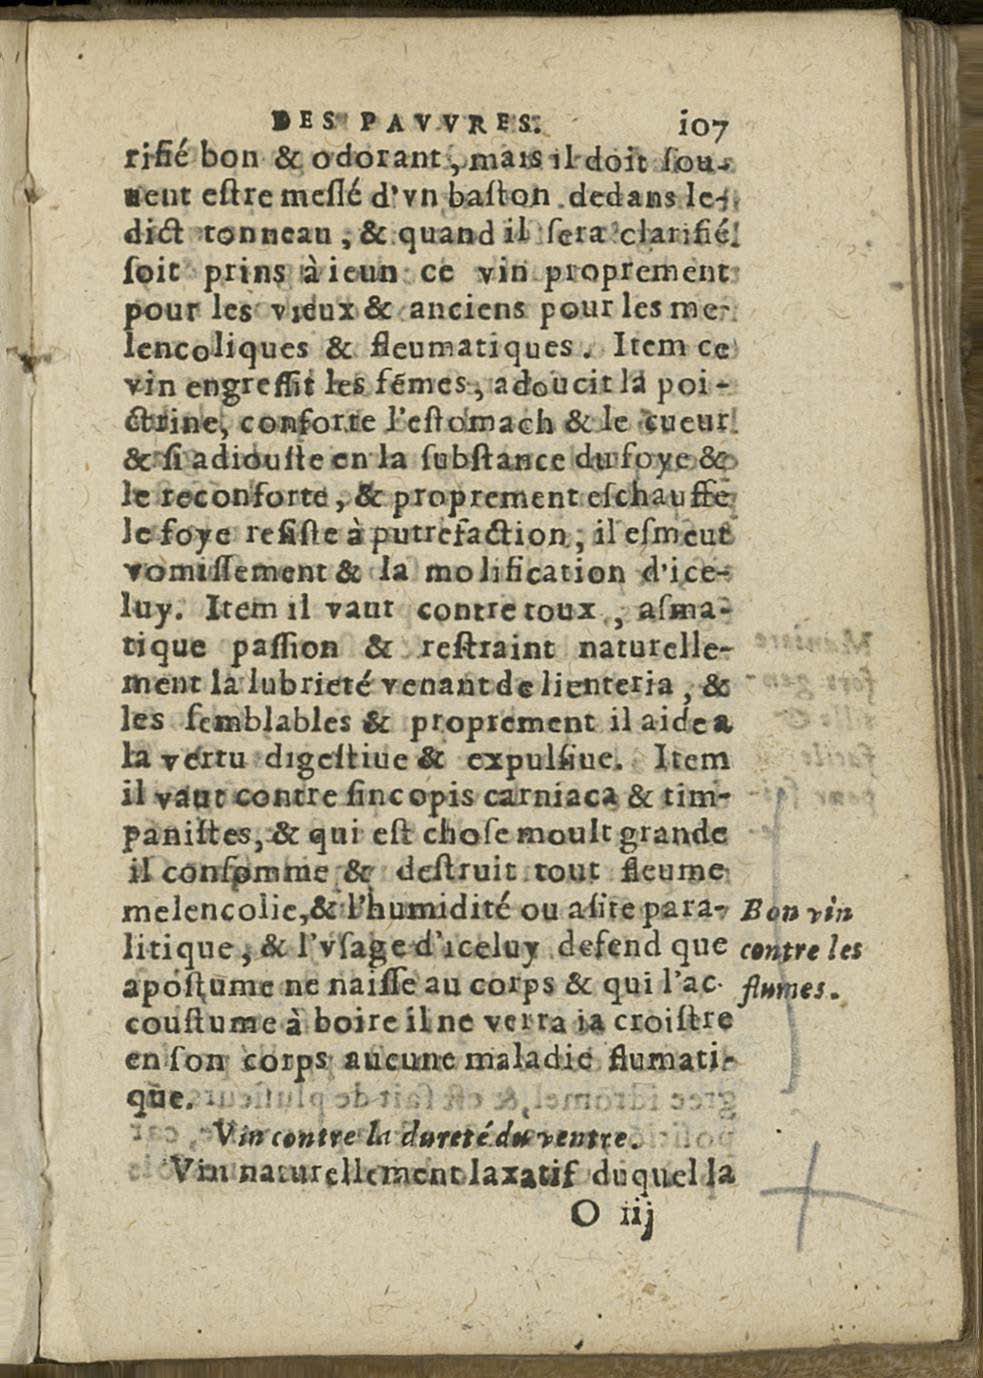 DES PAVVRES. 107
rifié bon & odorant, mais il doit ſou-
uent eſtre meſlé d'vn baſton dedans le-
dict tonneau, & quand il ſera clarifié
ſoit prins à ieun ce vin proprement
pour les vieux & anciens pour les me-
lencoliques & fleumatiques. Item ce
vin engreſſit les fémes, adoucit la poi-
ctrine, conforte l'eſtomach & le cueur
& ſi adiouſte en la ſubſtance du foye &
le reconforte, & proprement eſchauffe
le foye reſiſte à putrefaction, il eſmeut
vomiſſement & la molification d'ice-
luy. Item il vaut contre toux, aſma-
tique paſſion & reſtraint naturelle-
ment la lubrieté venant de lienteria, &
les ſemblables & proprement il aide a
la vertu digeſtiue & expulſiue. Item
il vaut contre ſincopis carniaca & tim-
paniſtes, & qui eſt choſe moult grande
il conſomme & deſtruit tout fleume
melencolie, & l'humidité ou aſite para-
litique, & l'vſage d'iceluy defend que
apoſtume ne naiſſe au corps & qui l'ac-
couſtume à boire il ne verra ia croiſtre
en ſon corps aucune maladie flumati-
que.
Bon vin
contre les
flumes.
Vin contre la dureté du ventre.
Vin naturellement laxatif duquel la
O iij